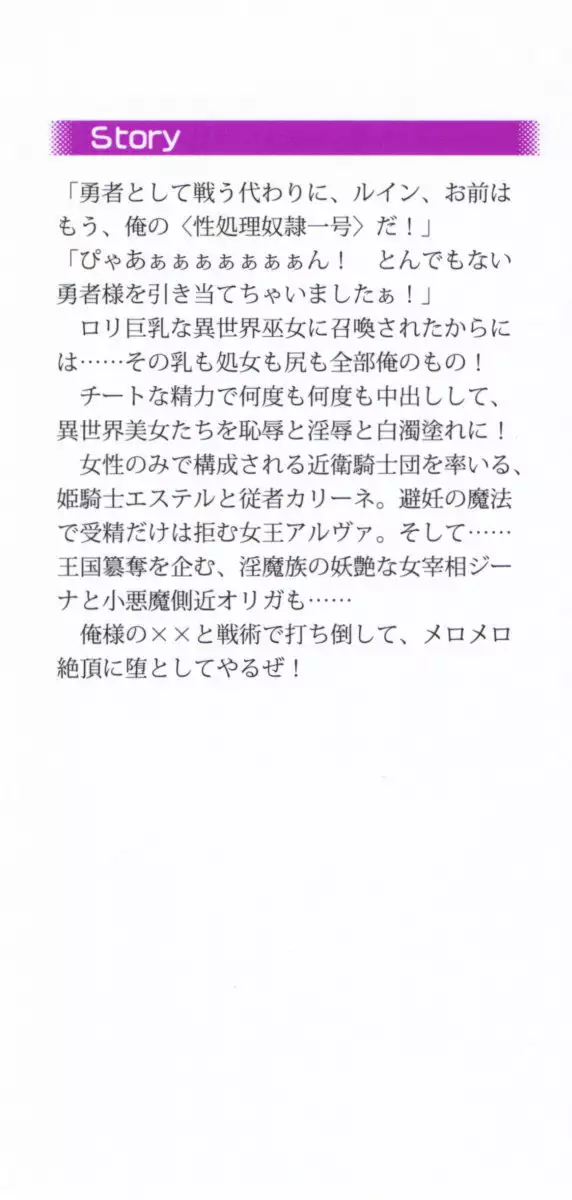 Story
「勇者として戦う代わりに、ルイン、お前は
もう、俺の〈性処理奴隷一号〉だ！」
「ぴゃあぁぁぁぁぁぁぁん！　とんでもない
勇者様を引き当てちゃいましたぁ！」
　ロリ巨乳な異世界巫女に召喚されたからに
は……その乳も処女も尻も全部俺のもの！
　チートな精力で何度も何度も中出しして、
異世界美女たちを恥辱と淫辱と白濁塗れに！
　女性のみで構成される近衛騎士団を率いる、
姫騎士エステルと従者カリーネ。避妊の魔法
で受精だけは拒む女王アルヴァ。そして……
王国簒奪を企む、淫魔族の妖艶な女宰相ジー
ナと小悪魔側近オリガも……
　俺様の××と戦術で打ち倒して、メロメロ
絶頂に堕としてやるぜ！